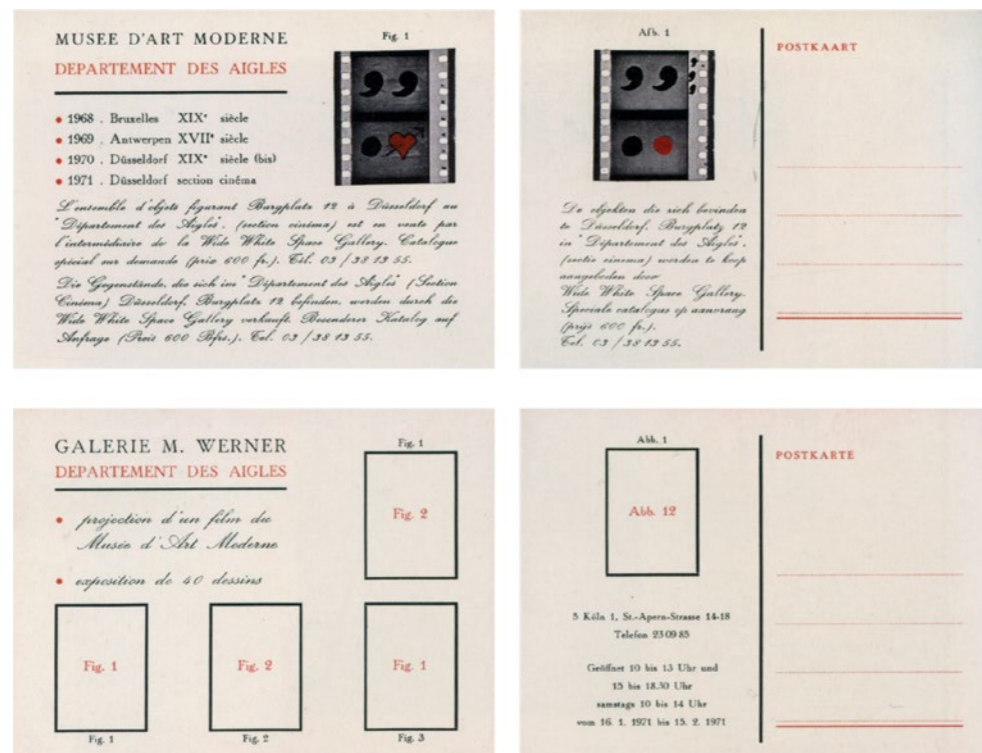 MUSEE D'ART MODERNE
DEPARTEMENT DES AIGLES
Fig. 1
• 1968 . Bruxelles XIXᵉ siècle
• 1969 . Antwerpen XVIIᵉ siècle
• 1970 . Düsseldorf XIXᵉ siècle (bis)
• 1971 . Düsseldorf section cinéma
L'ensemble d'objets figurant Burgplatz 12 à Düsseldorf au
"Département des Aigles". (section cinéma) est en vente par
l'intermédiaire de la Wide White Space Gallery. Catalogue
spécial sur demande (prix 600 fr.). Tél. 03 / 38 13 55.
Die Gegenstände, die sich im "Département des Aigles" (Section
Cinéma) Düsseldorf, Burgplatz 12 befinden, werden durch die
Wide White Space Gallery verkauft. Besonderer Katalog auf
Anfrage (Preis 600 Bfrs.). Tel. 03 / 38 13 55.
Afb. 1
De objekten die zich bevinden
te Düsseldorf, Burgplatz 12
in "Département des Aigles".
(sectie cinema) worden te koop
aangeboden door
Wide White Space Gallery.
Speciale catalogus op aanvraag
(prijs 600 fr.).
Tel. 03 / 38 13 55.
POSTKAART
GALERIE M. WERNER
DEPARTEMENT DES AIGLES
• projection d'un film du
Musée d'Art Moderne
• exposition de 40 dessins
Fig. 1
Fig. 2
Fig. 1
Fig. 2
Fig. 1
Fig. 1
Fig. 2
Fig. 3
Abb. 1
Abb. 12
5 Köln 1, St.-Apern-Strasse 14-18
Telefon 23 09 85
Geöffnet 10 bis 13 Uhr und
15 bis 18.30 Uhr
samstags 10 bis 14 Uhr
vom 16. 1. 1971 bis 15. 2. 1971
POSTKARTE